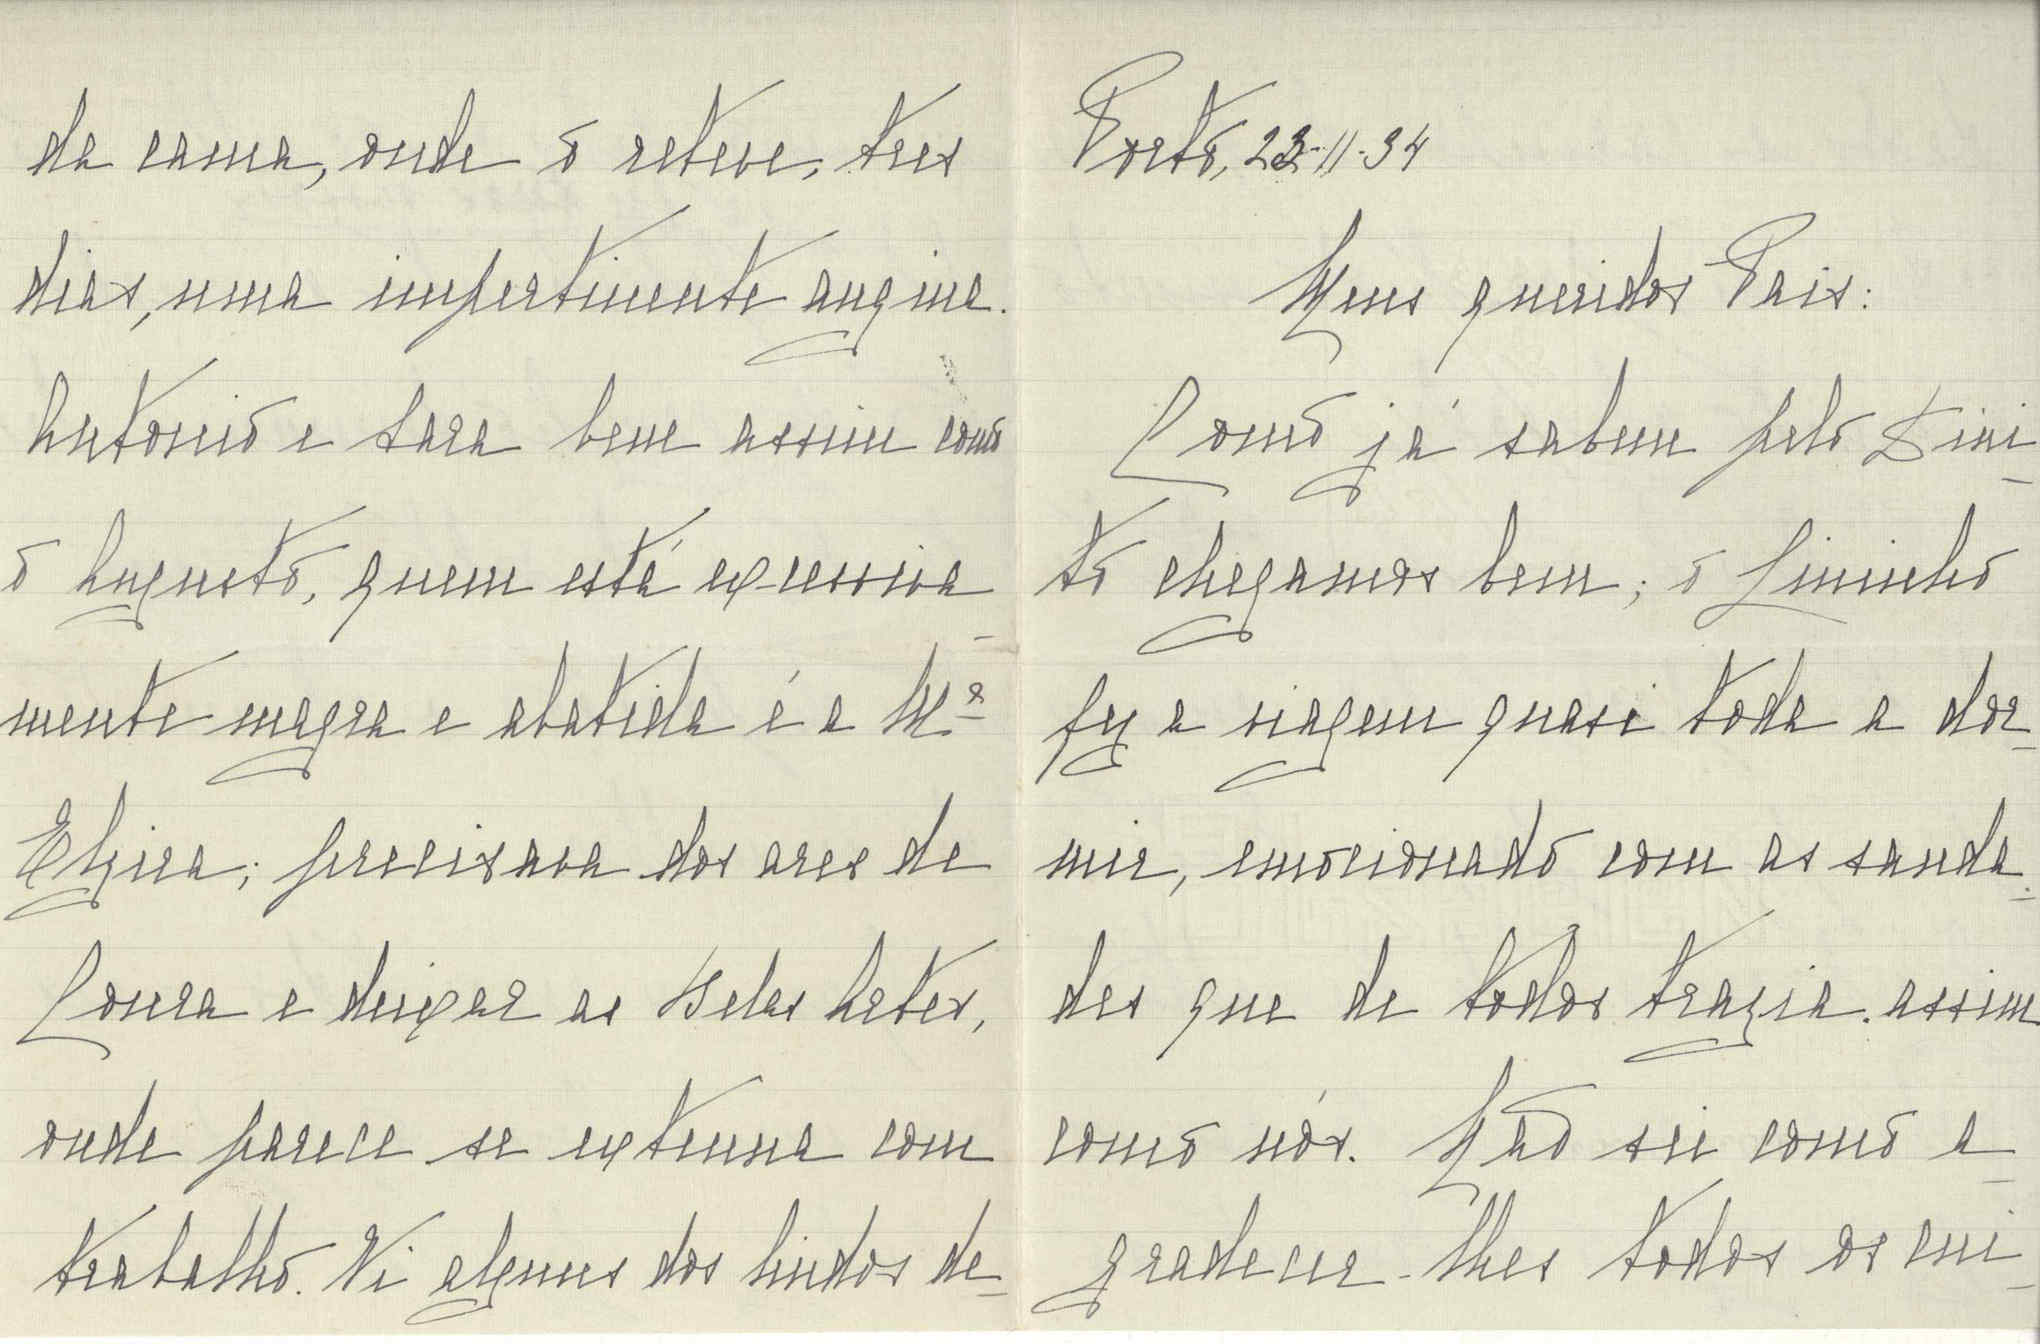 da cama, onde o reteve, tres
dias, uma impertinente angina.
Antonio e Sara bem assim como
o Augusto, quem está excessiva-
mente magra e abatida é a M.ª
Elzira; precisava dos ares de
Coura e deixar as Belas Artes,
onde parece se extenua com
trabalho. Vi alguns dos lindos de-
Porto, 23-11-34
Meus queridos Pais:
Como já sabem pelo Dini-
to chegamos bem; o Lininho
fez a viagem quasi toda a dor-
mir, emocionado com as sauda-
des que de todos trazia, assim
como nós. Não sei como a-
gradecer-lhes todos os cui-